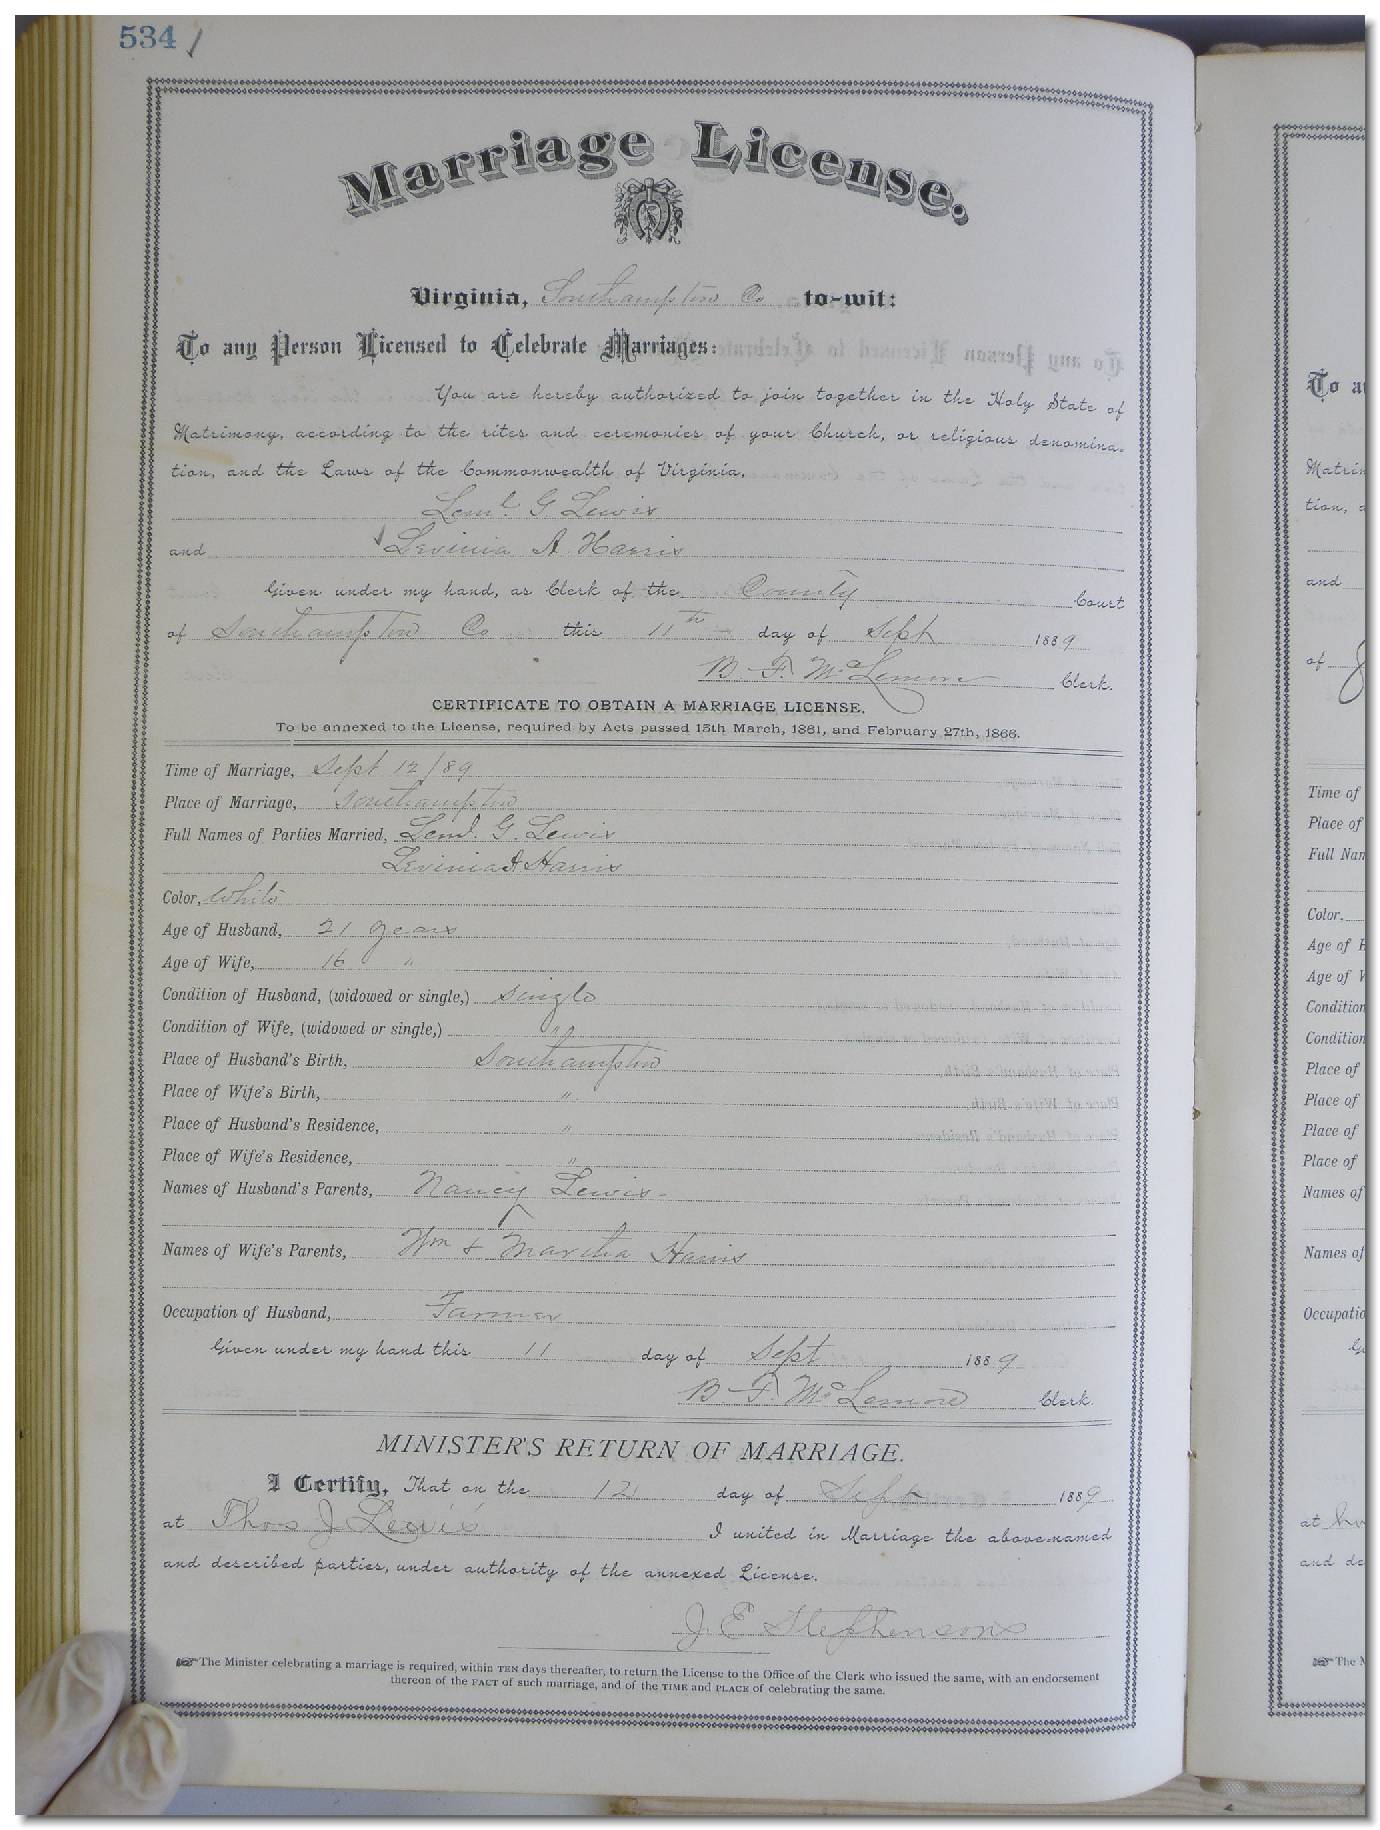 534
Marriage License.
Virginia, Southampton Co to-wit:
To any Person Licensed to Celebrate Marriages:
You are hereby authorized to join together in the Holy State of
Matrimony, according to the rites and ceremonies of your Church, or religious denomina-
tion, and the Laws of the Commonwealth of Virginia,
Leml. G. Lewis
and Levinia A Harris
Given under my hand, as Clerk of the County Court
of Southampton Co this 11th day of Sept 1889
B. F. McLemore Clerk.
CERTIFICATE TO OBTAIN A MARRIAGE LICENSE.
To be annexed to the License, required by Acts passed 15th March, 1861, and February 27th, 1866.
Time of Marriage, Sept 12/89
Place of Marriage, Southampton
Full Names of Parties Married, Leml. G. Lewis
Levinia A Harris
Color, White
Age of Husband, 21 years
Age of Wife, 16 "
Condition of Husband, (widowed or single,) single
Condition of Wife, (widowed or single,) "
Place of Husband's Birth, Southampton
Place of Wife's Birth, "
Place of Husband's Residence, "
Place of Wife's Residence, "
Names of Husband's Parents, Nancy Lewis
Names of Wife's Parents, Wm & Martha Harris
Occupation of Husband, Farmer
Given under my hand this 11 day of Sept 1889
B. F. McLemore Clerk.
MINISTER'S RETURN OF MARRIAGE.
I Certify, That on the 12 day of Sept 1889
at Thos J Lewis' I united in Marriage the above-named
and described parties, under authority of the annexed License.
J. E. Stephenson
The Minister celebrating a marriage is required, within TEN days thereafter, to return the License to the Office of the Clerk who issued the same, with an endorsement
thereon of the FACT of such marriage, and of the TIME and PLACE of celebrating the same.
To a
Matrim
tion,
and
of
Time of
Place of
Full Nam
Color,
Age of H
Age of W
Condition
Condition
Place of
Place of
Place of
Place of
Names of
Names of
Occupatio
at
and de
The M